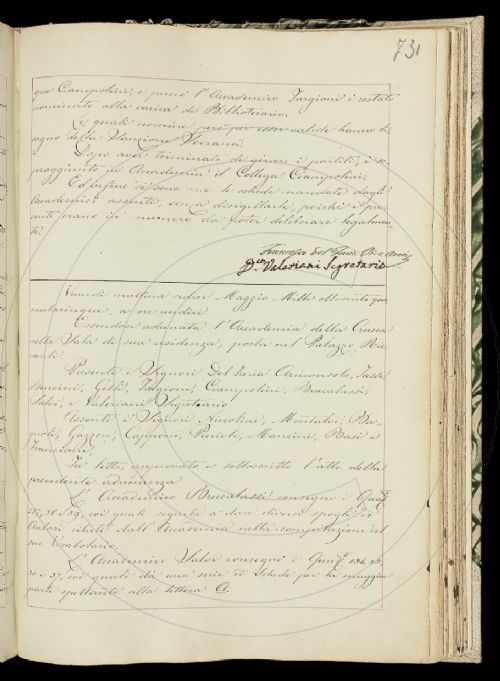 731
que Ciampolini, e perciò l'Accademico Targioni è restato
nominato alla carica di Bibliotecario.
Le quali nomine però per esser valide hanno bi-
sogno della Sanzione Sovrana.
Dopo aver terminato di girare i partiti, è so-
praggiunto in Accademia il Collega Ciampolini.
Ed infine si sono arse le schede mandate dagli
Accademici assenti, senza disigillarle, poiché i pre-
senti erano in numero da poter deliberare legalmen-
te.
Francesco Del Furia
Valeriani Segretario
Venerdì mattina Maggio Mille ottocento qua-
rantacinque, a ore undici.
Essendosi adunata l'Accademia della Crusca
nella Sala di sua residenza, posta nel Palazzo Ric-
cardi.
Presenti i Signori Del Furia Arciconsolo, Tassi,
Bencini, Gelli, Targioni, Ciampolini, Brucalassi,
Salvi, e Valeriani Segretario
Assenti i Signori Niccolini, Montalvi, Ba-
gnoli, Gazzeri, Capponi, Puccioli, Mancini, Basi e
Franciani.
Fu letto, approvato e sottoscritto l'atto della
precedente adunanza.
L'Accademico Brucalassi consegnò i
58 e 59, coi quali seguita a dare diversi spogli di
Autori citati dall'Accademia nella compilazione del
suo Vocabolario.
L'Accademico Salvi consegnò i
e 37, coi quali dà una serie di Schede per la maggior
parte spettante alla lettera A.